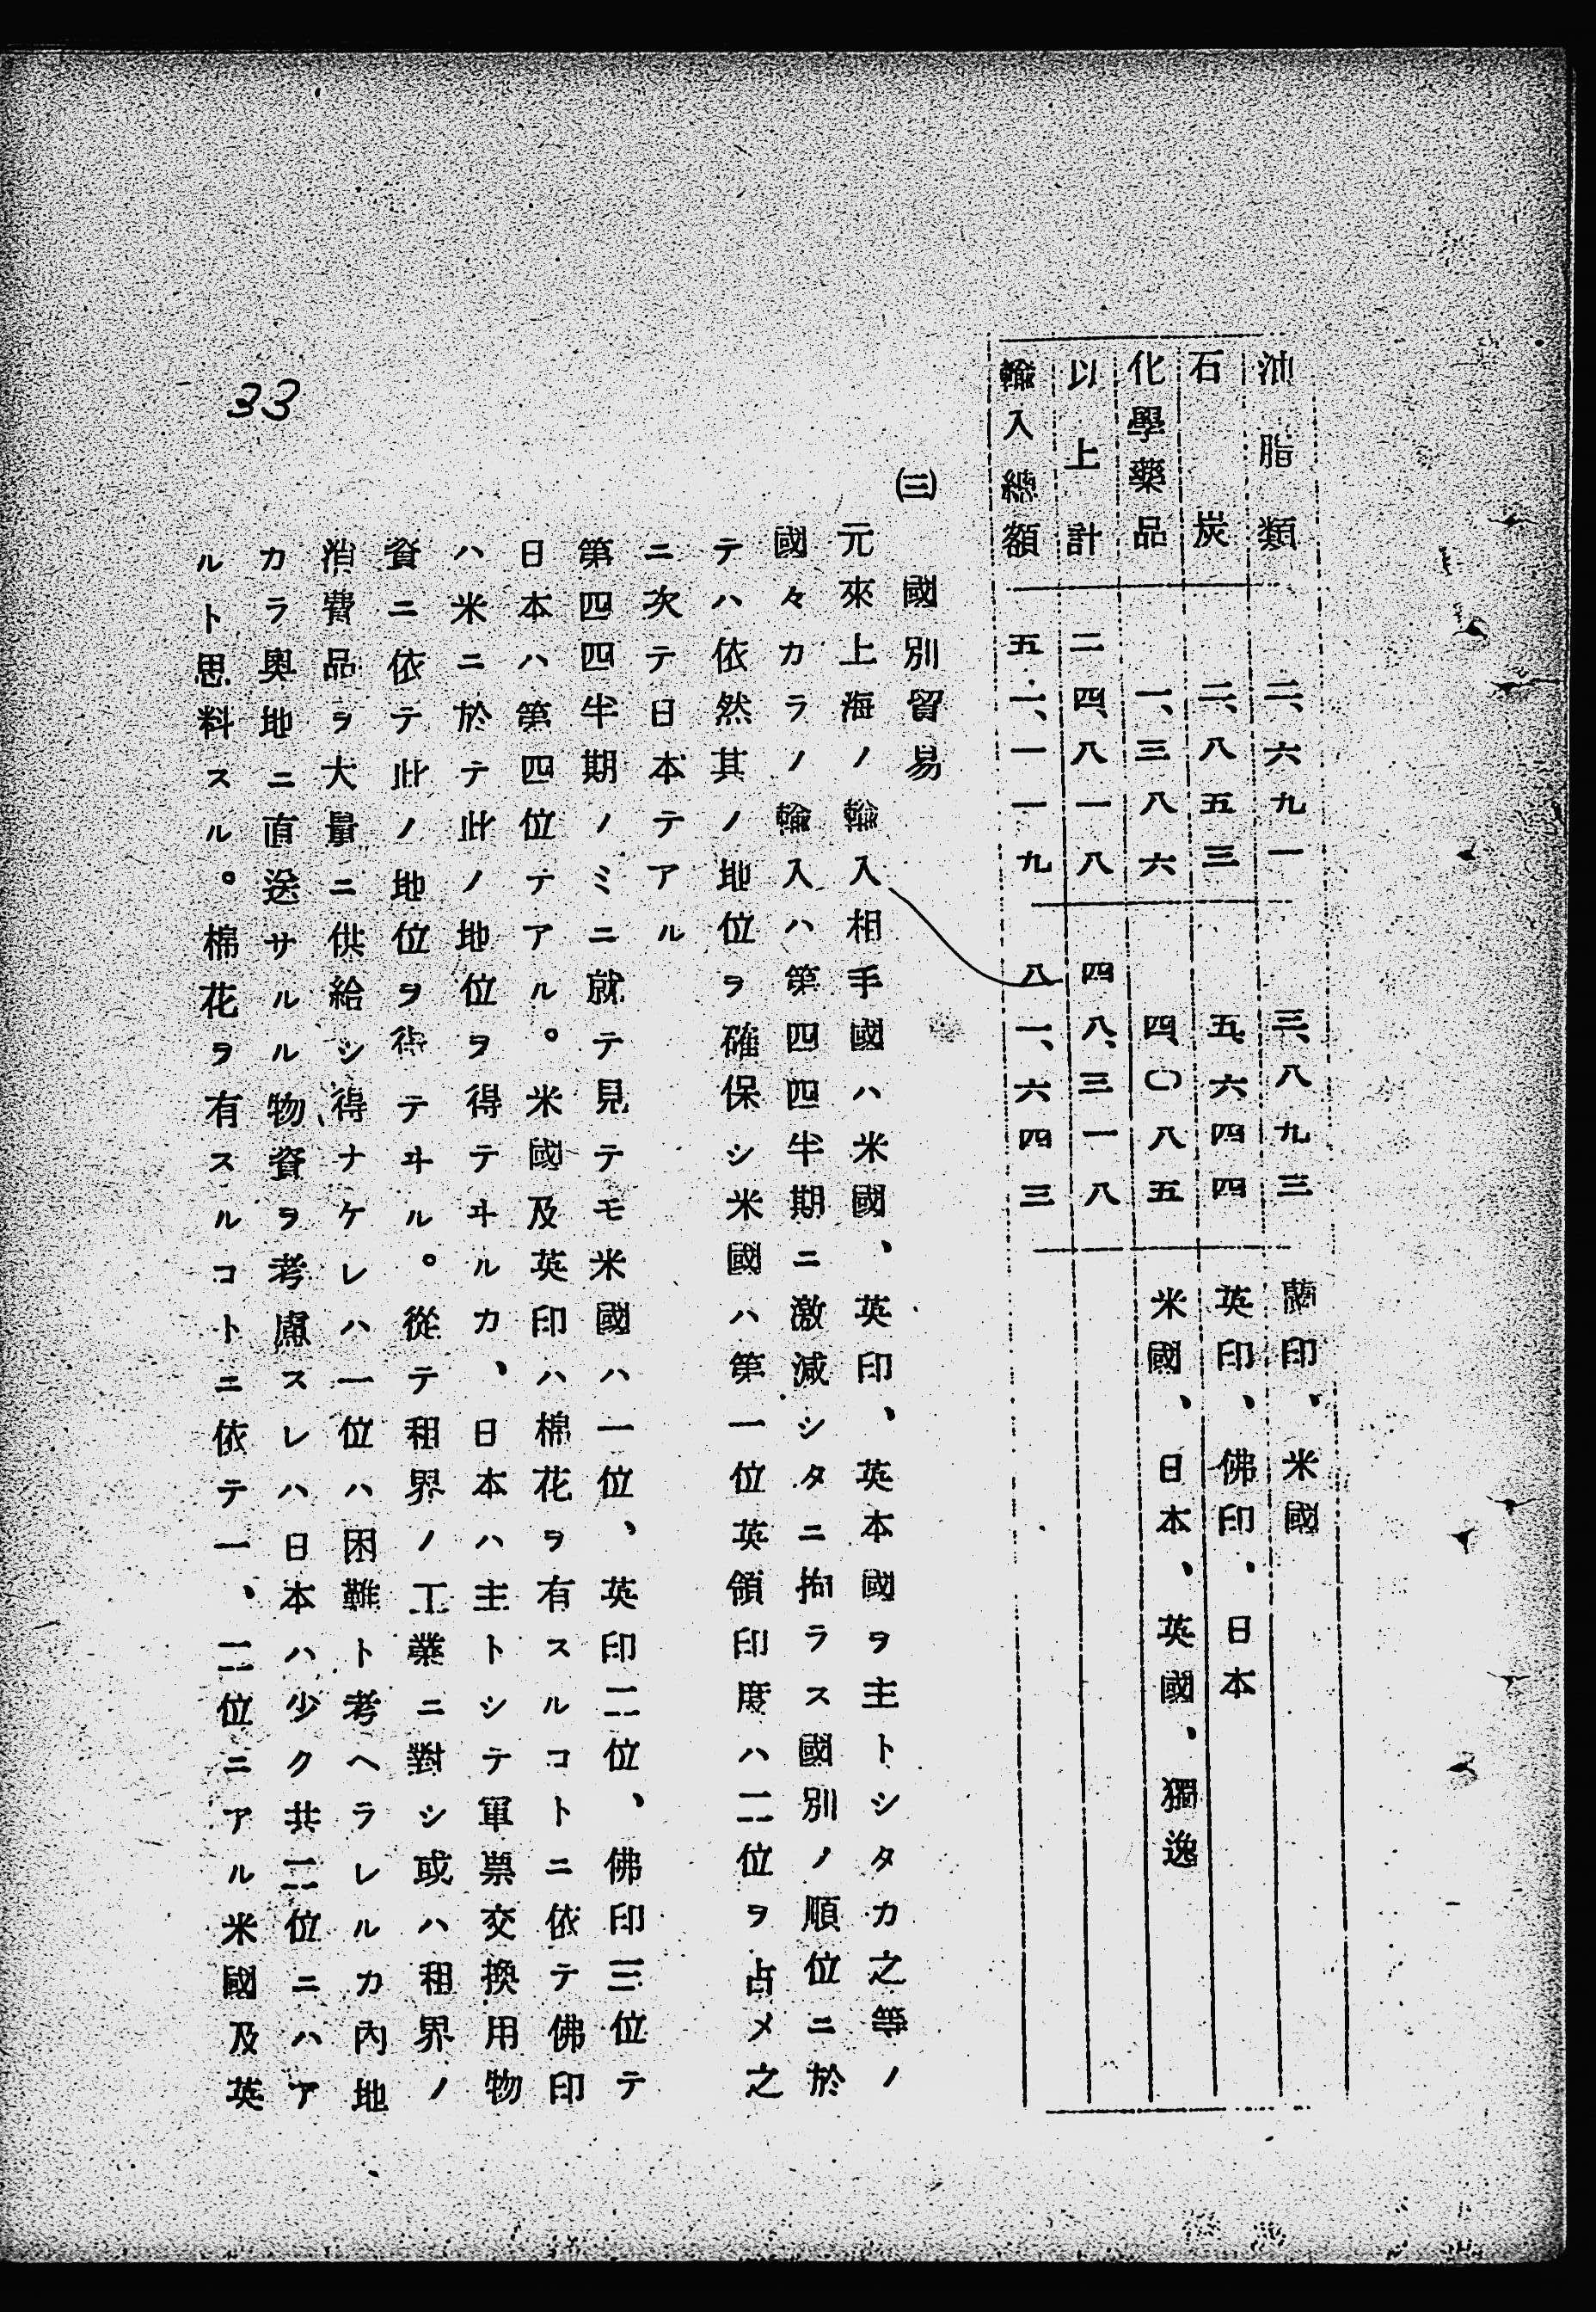 油脂類 二、六九一 三、八九三 蘭印、米國
石炭 二、八五三 五、六四四 英印、佛印、日本
化學藥品 一、三八六 四、〇八五 米國、日本、英國、獨逸
以上計 二四、八一八 四八、三一八
輸入總額 五一、一一九 八一、六四三
㈢ 國別貿易
元來上海ノ輸入相手國ハ米國、英印、英本國ヲ主トシタカ之等ノ
國々カラノ輸入ハ第四四半期ニ激減シタニ拘ラス國別ノ順位ニ於
テハ依然其ノ地位ヲ確保シ米國ハ第一位英領印度ハ二位ヲ占メ之
ニ次テ日本テアル
第四四半期ノミニ就テ見テモ米國ハ一位、英印二位、佛印三位テ
日本ハ第四位テアル。米國及英印ハ棉花ヲ有スルコトニ依テ佛印
ハ米ニ於テ此ノ地位ヲ得テヰルカ、日本ハ主トシテ軍票交換用物
資ニ依テ此ノ地位ヲ得テヰル。從テ租界ノ工業ニ對シ或ハ租界ノ
消費品ヲ大量ニ供給シ得ナケレハ一位ハ困難ト考ヘラレルカ內地
カラ奧地ニ直送サルル物資ヲ考慮スレハ日本ハ少ク共二位ニハア
ルト思料スル。棉花ヲ有スルコトニ依テ一、二位ニアル米國及英
33